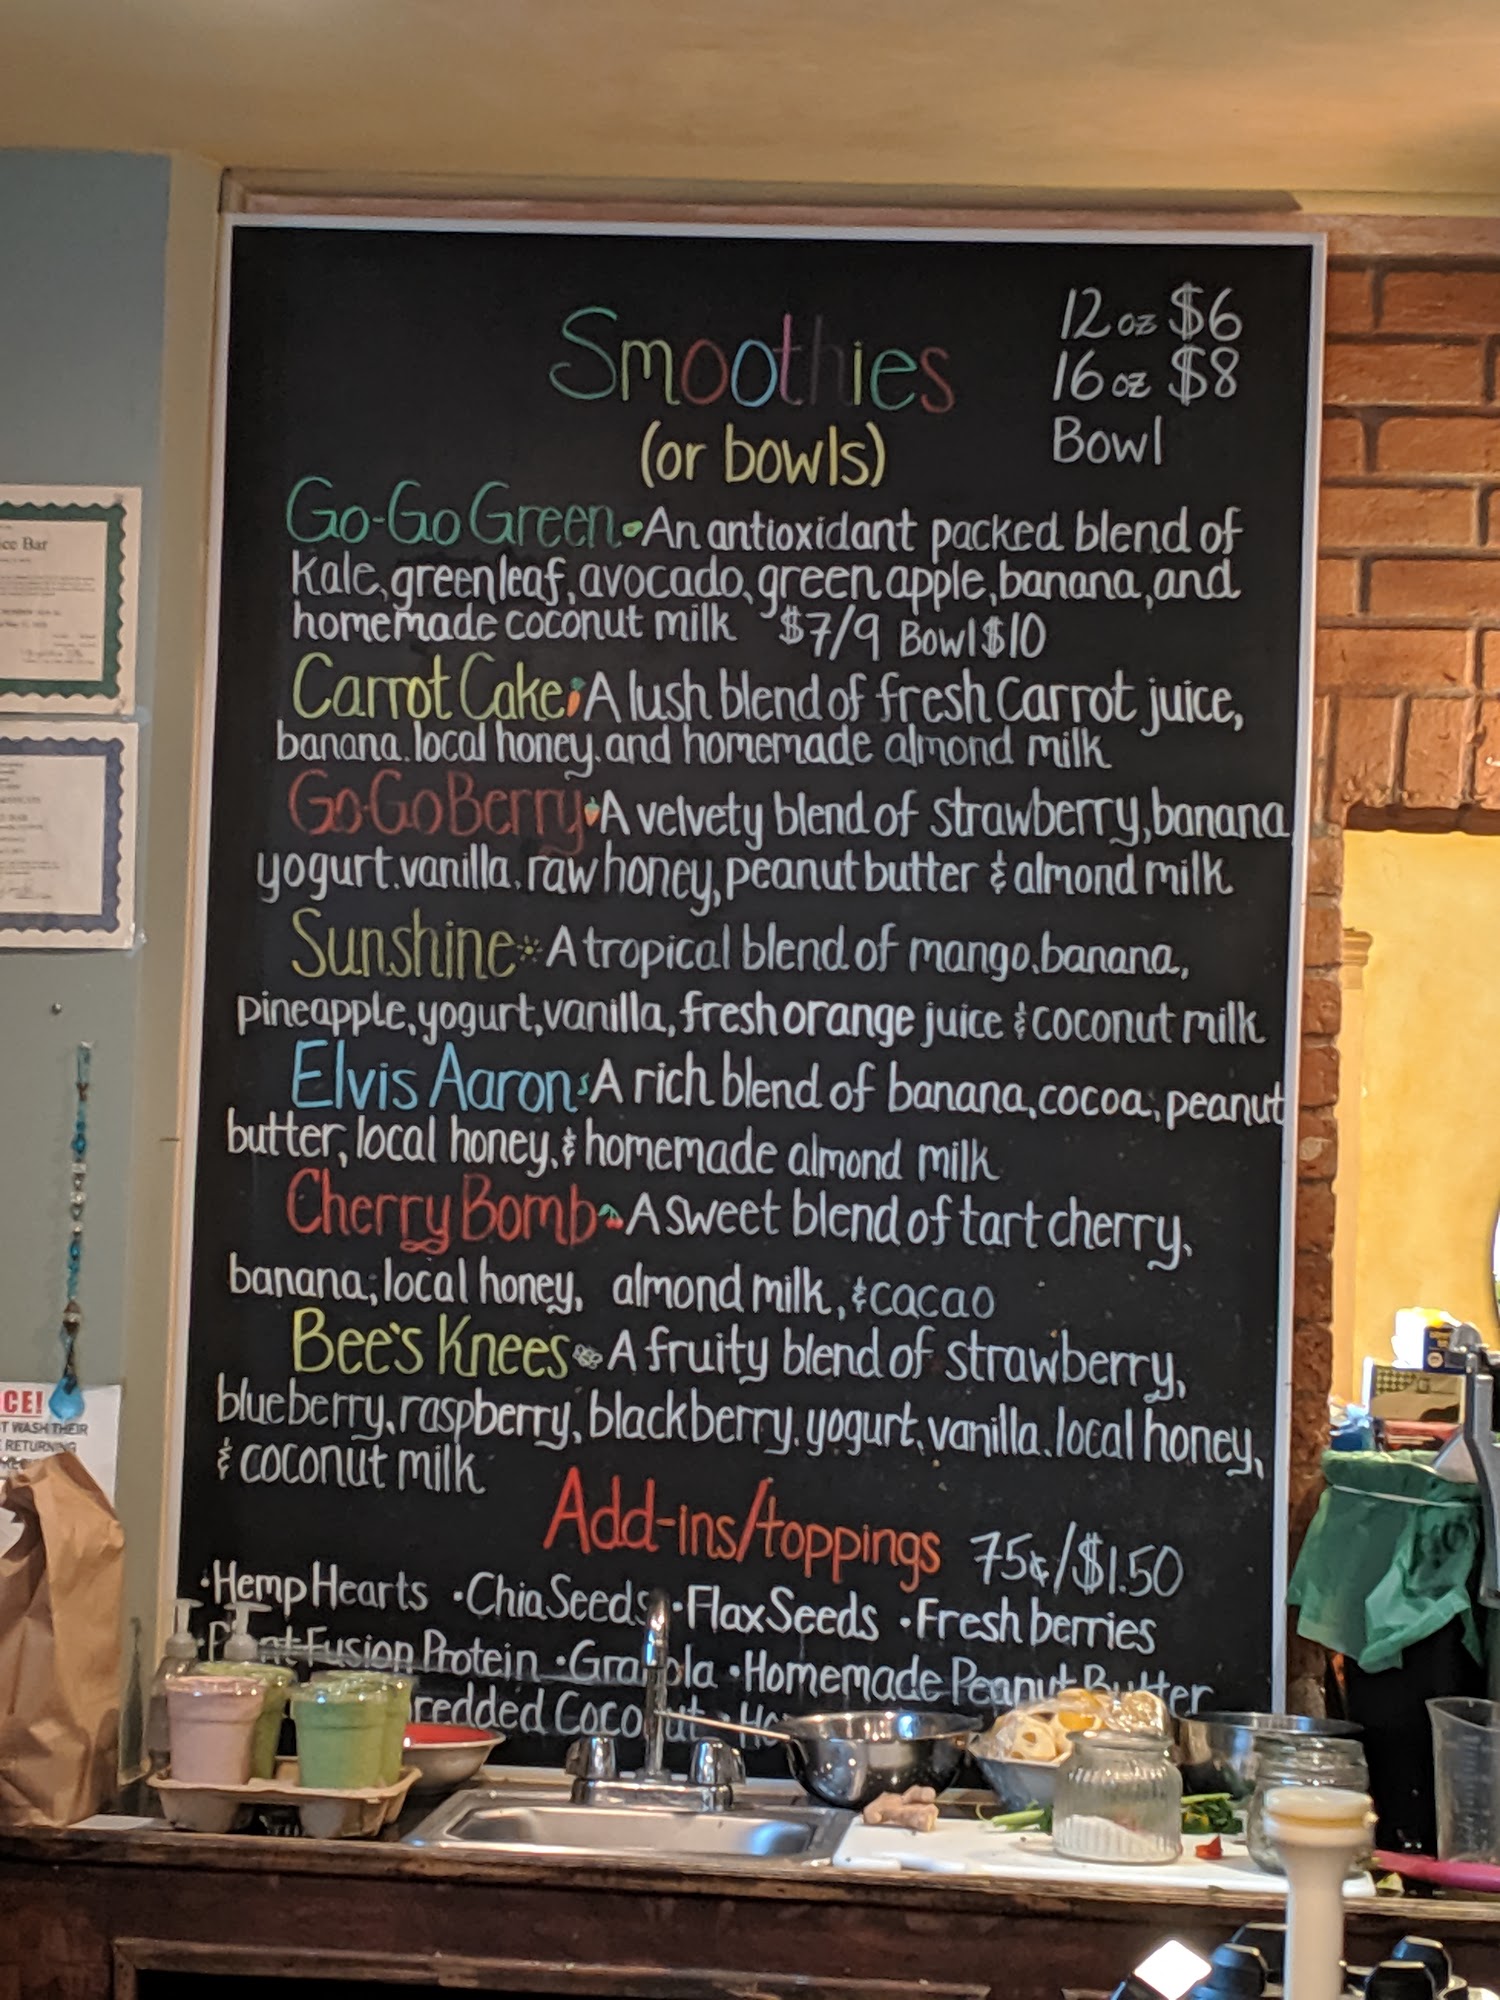 Smoothies
(or bowls)
12 oz $6
16 oz $8
Bowl
Go-Go Green An antioxidant packed blend of
Kale, green leaf, avocado, green apple, banana, and
homemade coconut milk $7/9 Bowl $10
Carrot Cake A lush blend of fresh Carrot juice,
banana, local honey, and homemade almond milk
Go-Go Berry A velvety blend of strawberry, banana
yogurt, vanilla, raw honey, peanut butter & almond milk
Sunshine A tropical blend of mango, banana,
pineapple, yogurt, vanilla, fresh orange juice & coconut milk
Elvis Aaron A rich blend of banana, cocoa, peanut
butter, local honey, & homemade almond milk
Cherry Bomb A sweet blend of tart cherry,
banana, local honey, almond milk, & cacao
Bee's Knees A fruity blend of strawberry,
blueberry, raspberry, blackberry, yogurt, vanilla, local honey,
& coconut milk
Add-ins/toppings 75¢/$1.50
•Hemp Hearts •Chia Seeds •Flax Seeds •Fresh berries
•Plant Fusion Protein •Granola •Homemade Peanut Butter
Coconut
ice Bar
CE!
T WASH THEIR
RETURNING